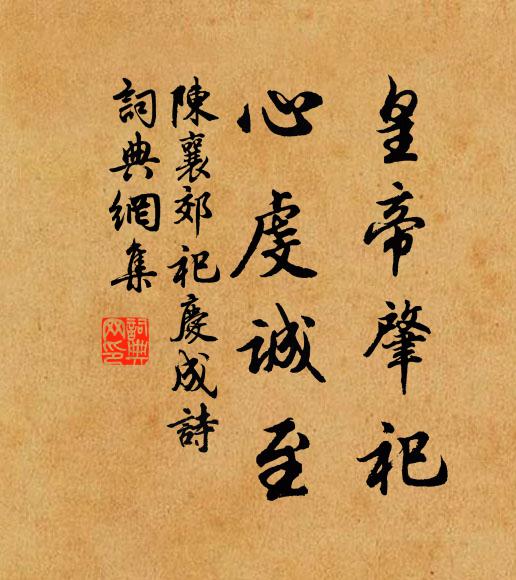 皇帝肇祀
心虔誠至
陳襄郊祀慶成詩
詞典網集
詞典網印